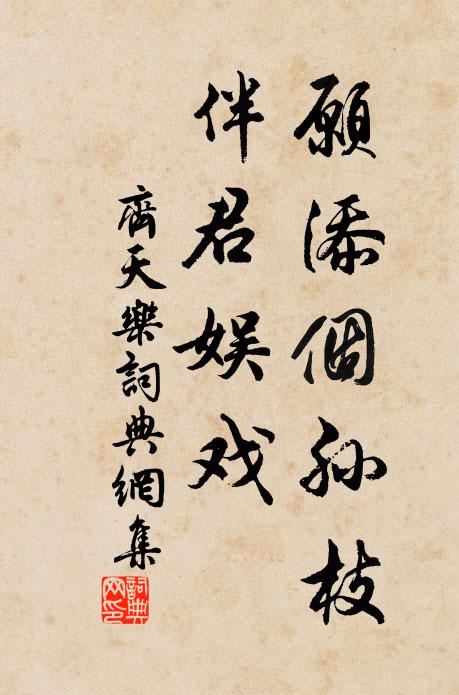 願添個孙枝
伴君娱戏
齊天樂詞典網集
詞典
网印